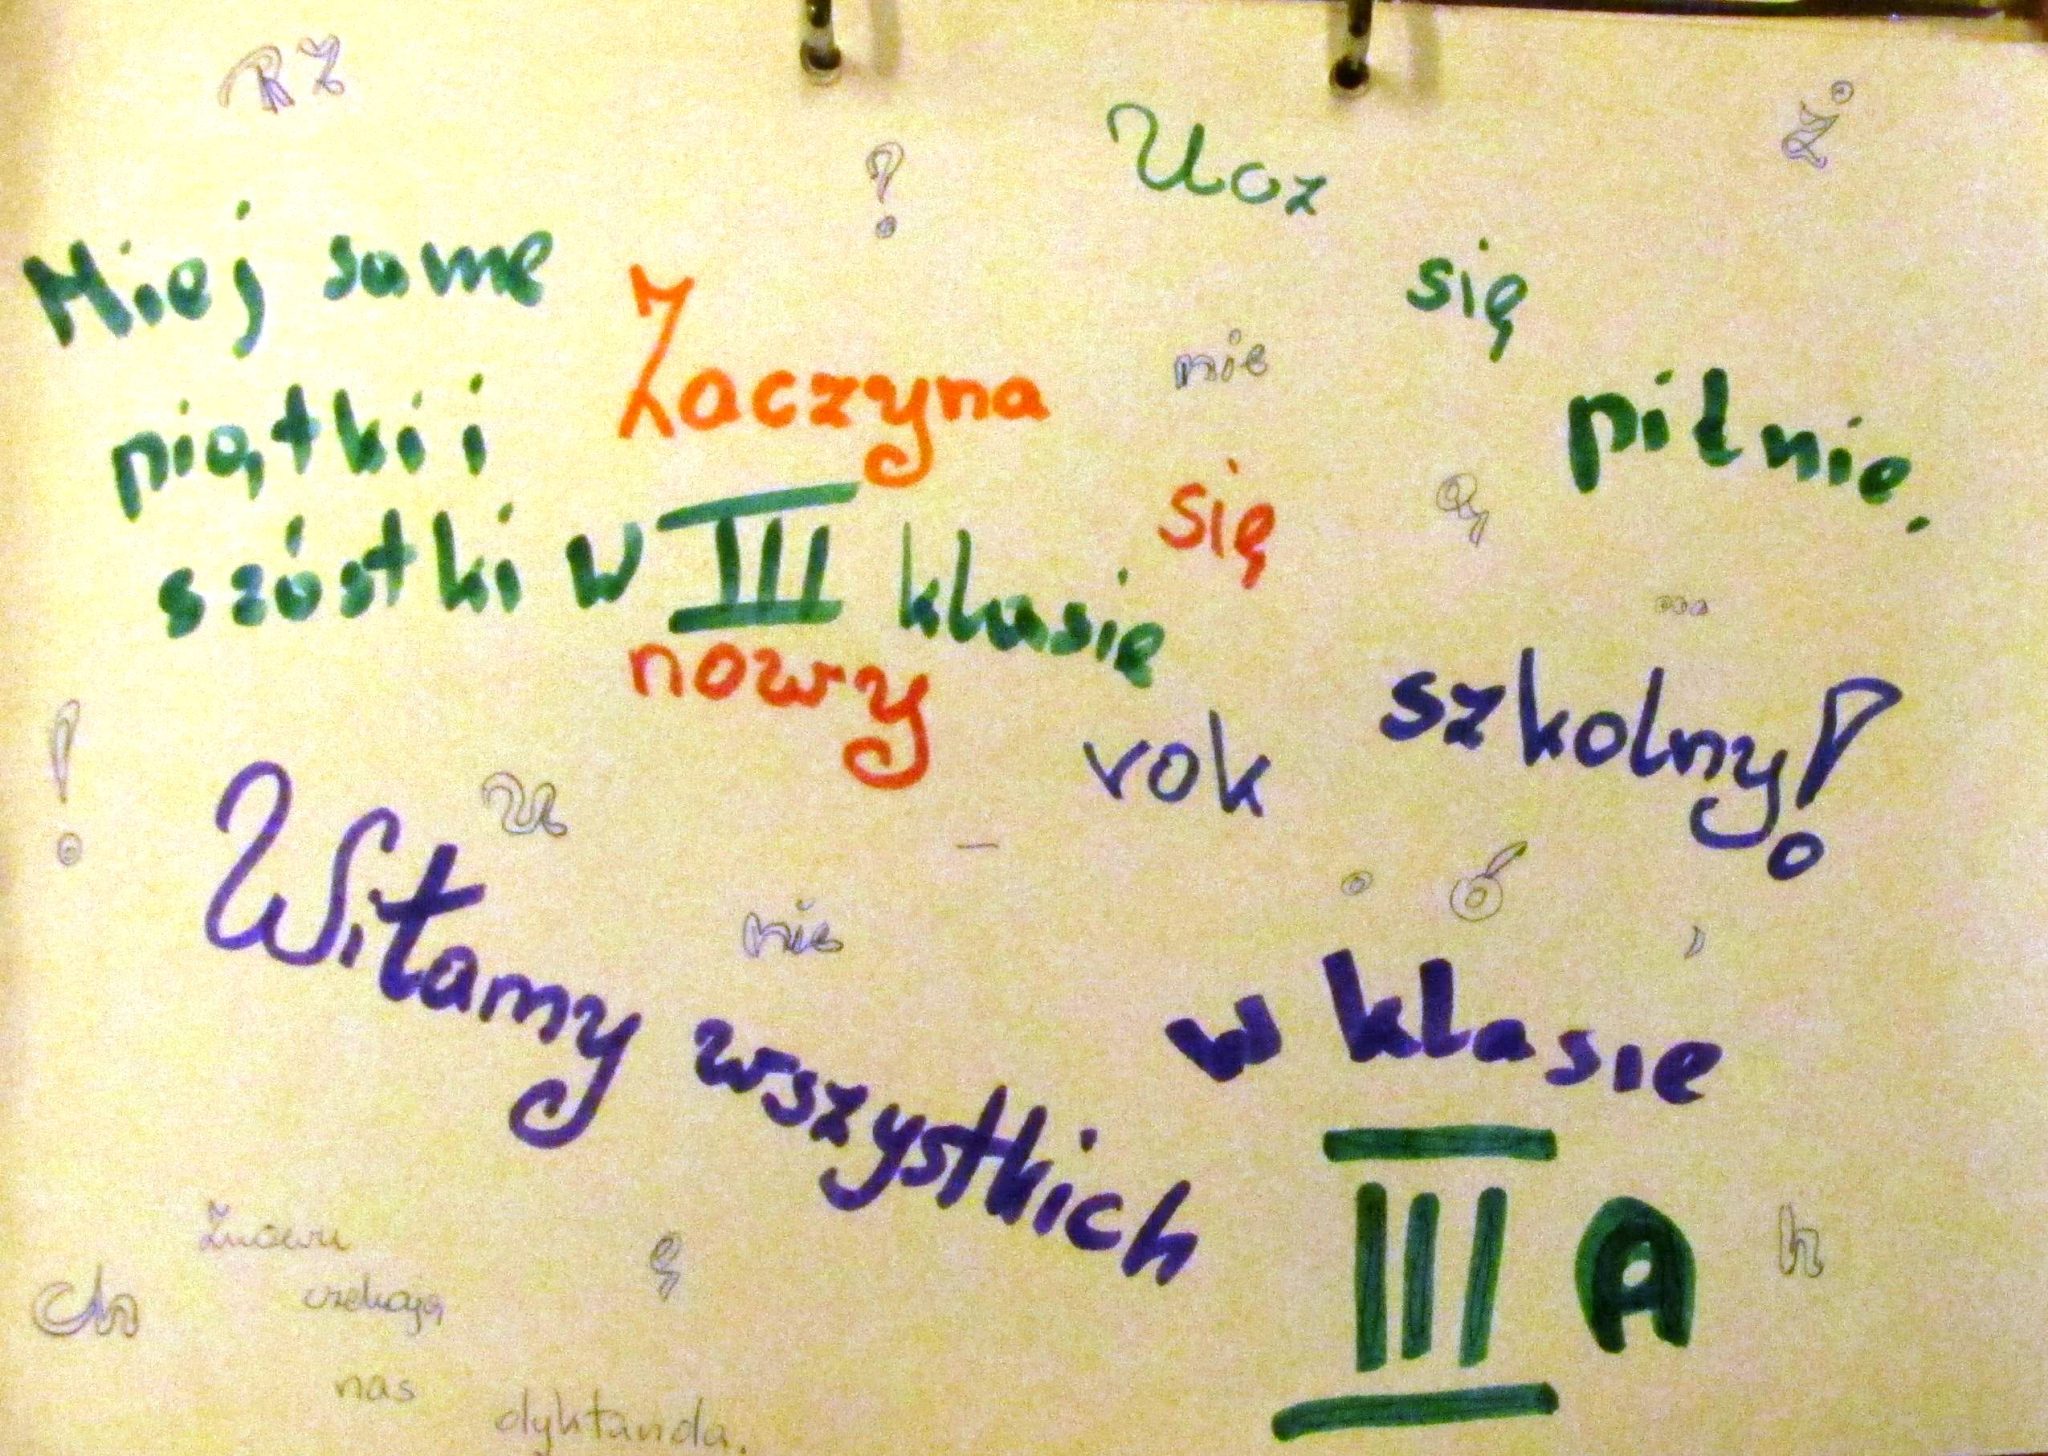 RZ
?
Ż
Ucz
się
pilnie.
Miej same
piątki i
szóstki w III klasie
Zaczyna
się
nowy
rok
szkolny!
nie
ą
...
!
u
nie
-
ó
,
Witamy wszystkich
w klasie
III A
h
ę
Ch
Znowu
czekają
nas
dyktanda.